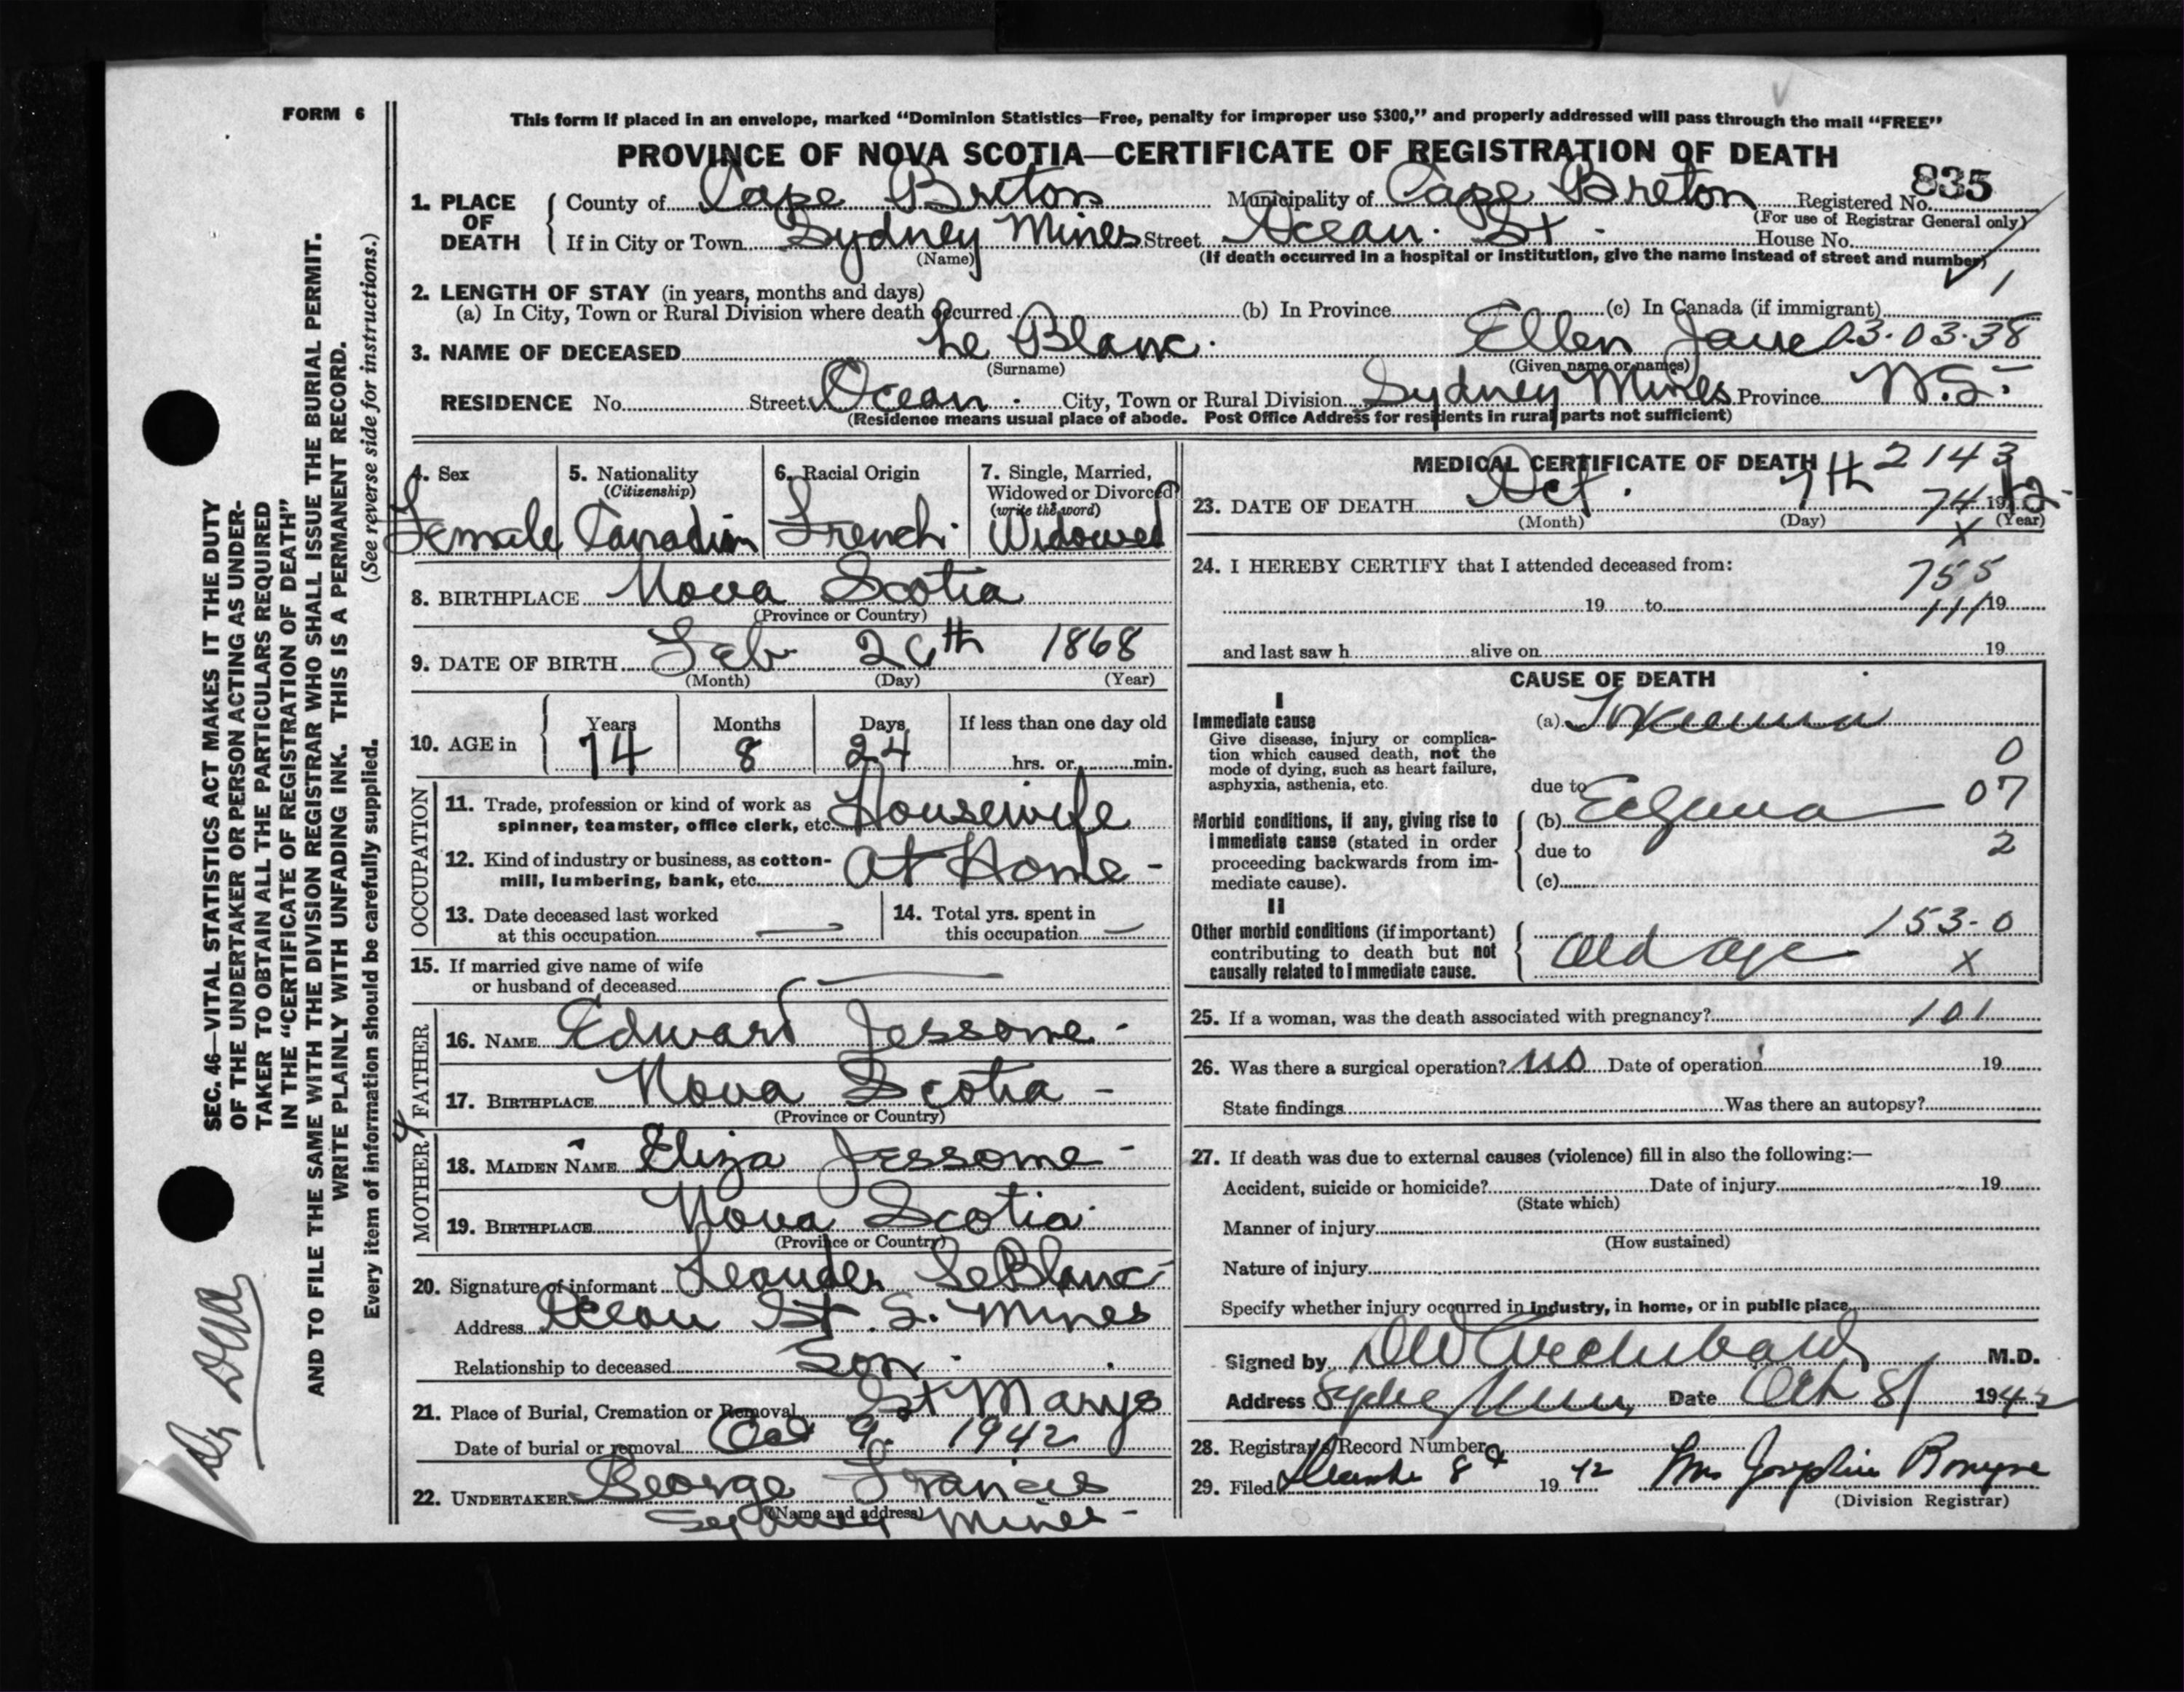 FORM 6
This form if placed in an envelope, marked “Dominion Statistics—Free, penalty for improper use $300,” and properly addressed will pass through the mail “FREE”
PROVINCE OF NOVA SCOTIA—CERTIFICATE OF REGISTRATION OF DEATH
835
1. PLACE OF DEATH
County of Cape Breton Municipality of Cape Breton Registered No.
(For use of Registrar General only)
If in City or Town Sydney Mines Street Ocean St. House No.
(Name) (If death occurred in a hospital or institution, give the name instead of street and number)
1
2. LENGTH OF STAY (in years, months and days)
(a) In City, Town or Rural Division where death occurred (b) In Province (c) In Canada (if immigrant)
3. NAME OF DECEASED Le Blanc. Ellen Jane 03-03-38
(Surname) (Given name or names)
RESIDENCE No. Street Ocean. City, Town or Rural Division Sydney Mines Province N.S.
(Residence means usual place of abode. Post Office Address for residents in rural parts not sufficient)
4. Sex
Female
5. Nationality
(Citizenship)
Canadian
6. Racial Origin
French
7. Single, Married,
Widowed or Divorced
(write the word)
Widowed
8. BIRTHPLACE Nova Scotia
(Province or Country)
9. DATE OF BIRTH Feb 26th 1868
(Month) (Day) (Year)
10. AGE in
Years Months Days If less than one day old
74 8 24 hrs. or min.
OCCUPATION
11. Trade, profession or kind of work as
spinner, teamster, office clerk, etc. Housewife
12. Kind of industry or business, as cotton-
mill, lumbering, bank, etc. At Home -
13. Date deceased last worked
at this occupation —
14. Total yrs. spent in
this occupation —
15. If married give name of wife
or husband of deceased —
FATHER
16. NAME Edward Jessome -
17. BIRTHPLACE Nova Scotia -
(Province or Country)
MOTHER
18. MAIDEN NAME Eliza Jessome -
19. BIRTHPLACE Nova Scotia
(Province or Country)
20. Signature of informant Leander LeBlanc
Address Ocean St. S. Mines
Relationship to deceased Son
21. Place of Burial, Cremation or Removal St Marys
Date of burial or removal Oct 9. 1942
22. UNDERTAKER George Francis
(Name and address)
Sydney Mines -
MEDICAL CERTIFICATE OF DEATH
2143
23. DATE OF DEATH Oct. 7th 1942
(Month) (Day) (Year)
74
X
24. I HEREBY CERTIFY that I attended deceased from:
755
19 to 19
111
and last saw h alive on 19
CAUSE OF DEATH
I
Immediate cause
Give disease, injury or complica-
tion which caused death, not the
mode of dying, such as heart failure,
asphyxia, asthenia, etc.
(a)
0
due to
07
Morbid conditions, if any, giving rise to
immediate cause (stated in order
proceeding backwards from im-
mediate cause).
(b)
due to
2
(c)
II
Other morbid conditions (if important)
contributing to death but not
causally related to immediate cause.
153-0
Old age
X
25. If a woman, was the death associated with pregnancy? 101
26. Was there a surgical operation? no Date of operation 19
State findings Was there an autopsy?
27. If death was due to external causes (violence) fill in also the following:—
Accident, suicide or homicide? Date of injury 19
(State which)
Manner of injury
(How sustained)
Nature of injury
Specify whether injury occurred in industry, in home, or in public place
Signed by DW Archibald M.D.
Address Sydney Mines Date Oct 8/ 1942
28. Registrar's Record Number
29. Filed 8 1942 Mrs Josephine
(Division Registrar)
SEC. 46—VITAL STATISTICS ACT MAKES IT THE DUTY
OF THE UNDERTAKER OR PERSON ACTING AS UNDER-
TAKER TO OBTAIN ALL THE PARTICULARS REQUIRED
IN THE “CERTIFICATE OF REGISTRATION OF DEATH”
AND TO FILE THE SAME WITH THE DIVISION REGISTRAR WHO SHALL ISSUE THE BURIAL PERMIT.
WRITE PLAINLY WITH UNFADING INK. THIS IS A PERMANENT RECORD.
Every item of information should be carefully supplied. (See reverse side for instructions.)